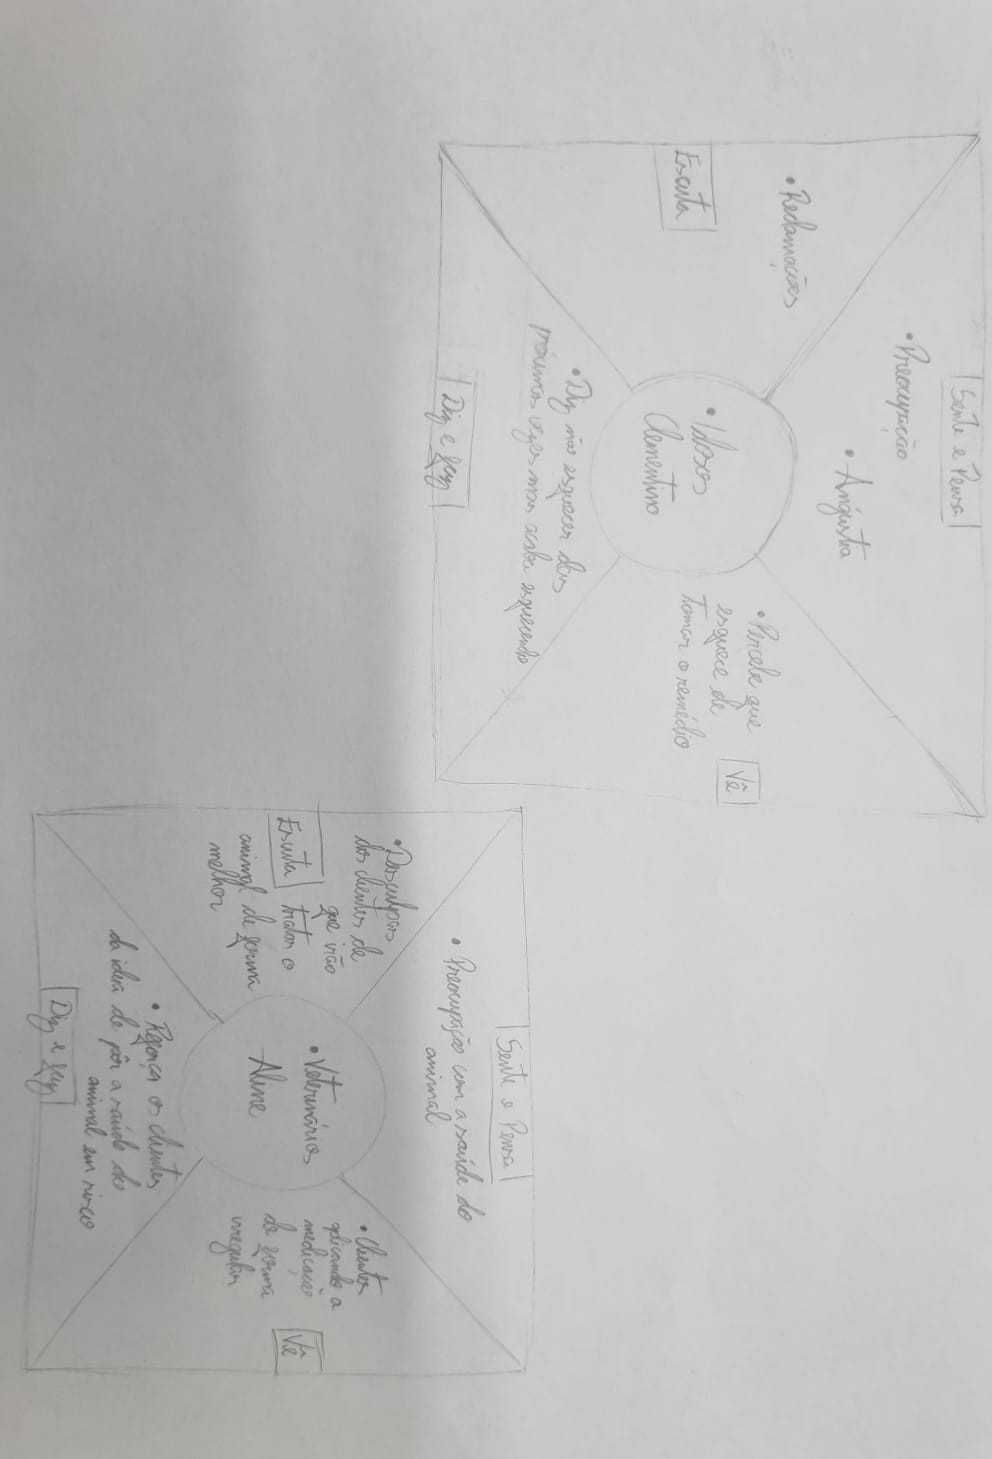 Sente e Pensa
• Preocupação
• Angústia
• Reclamações
Escuta
• Idosos
Clementino
• Percebe que
esquece de
Tomar o remédio
Vê
• Diz não esquecer das
próximas vezes mas acaba esquecendo
Diz e faz
Sente e Pensa
• Preocupação com a saúde do
animal
• Desculpas
dos clientes de
que irão
tratar o
animal de forma
melhor
Escuta
• Veterinários
Aline
• Clientes
aplicando a
medicação
de forma
irregular
Vê
• Reforça os clientes
da ideia de pôr a saúde do
animal em risco
Diz e faz